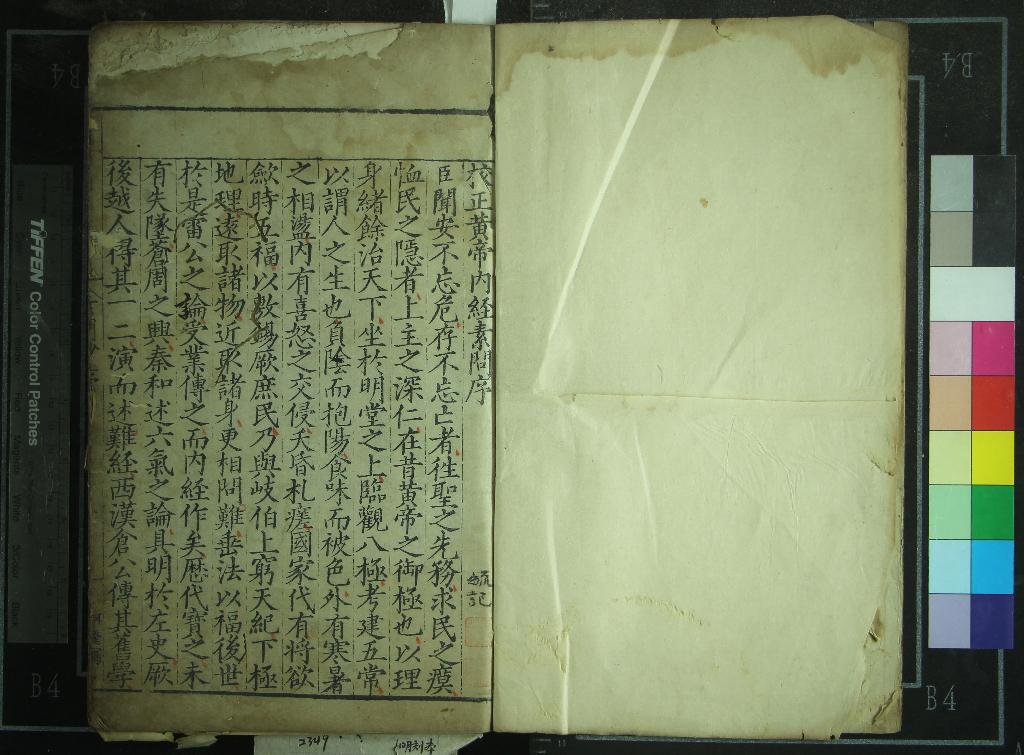 校正黄帝内經素問序
臣聞安不忘危存不忘亡者往聖之先務求民之瘼
恤民之隱者上主之深仁在昔黄帝之御極也以理
身緒餘治天下坐於明堂之上臨觀八極考建五常
以謂人之生也負陰而抱陽食味而被色外有寒暑
之相盪内有喜怒之交侵夭昏札瘥國家代有將欲
歛時五福以敷錫厥庶民乃與岐伯上窮天紀下極
地理遠取諸物近取諸身更相問難垂法以福後世
於是雷公之論受業傳之而内經作矣歷代寶之未
有失墜蒼周之興秦和述六氣之論具明於左史厥
後越人得其一二演而述難經西漢倉公傳其舊學
記
B4
B4
B4
B4
TIFFEN Color Control Patches
2349